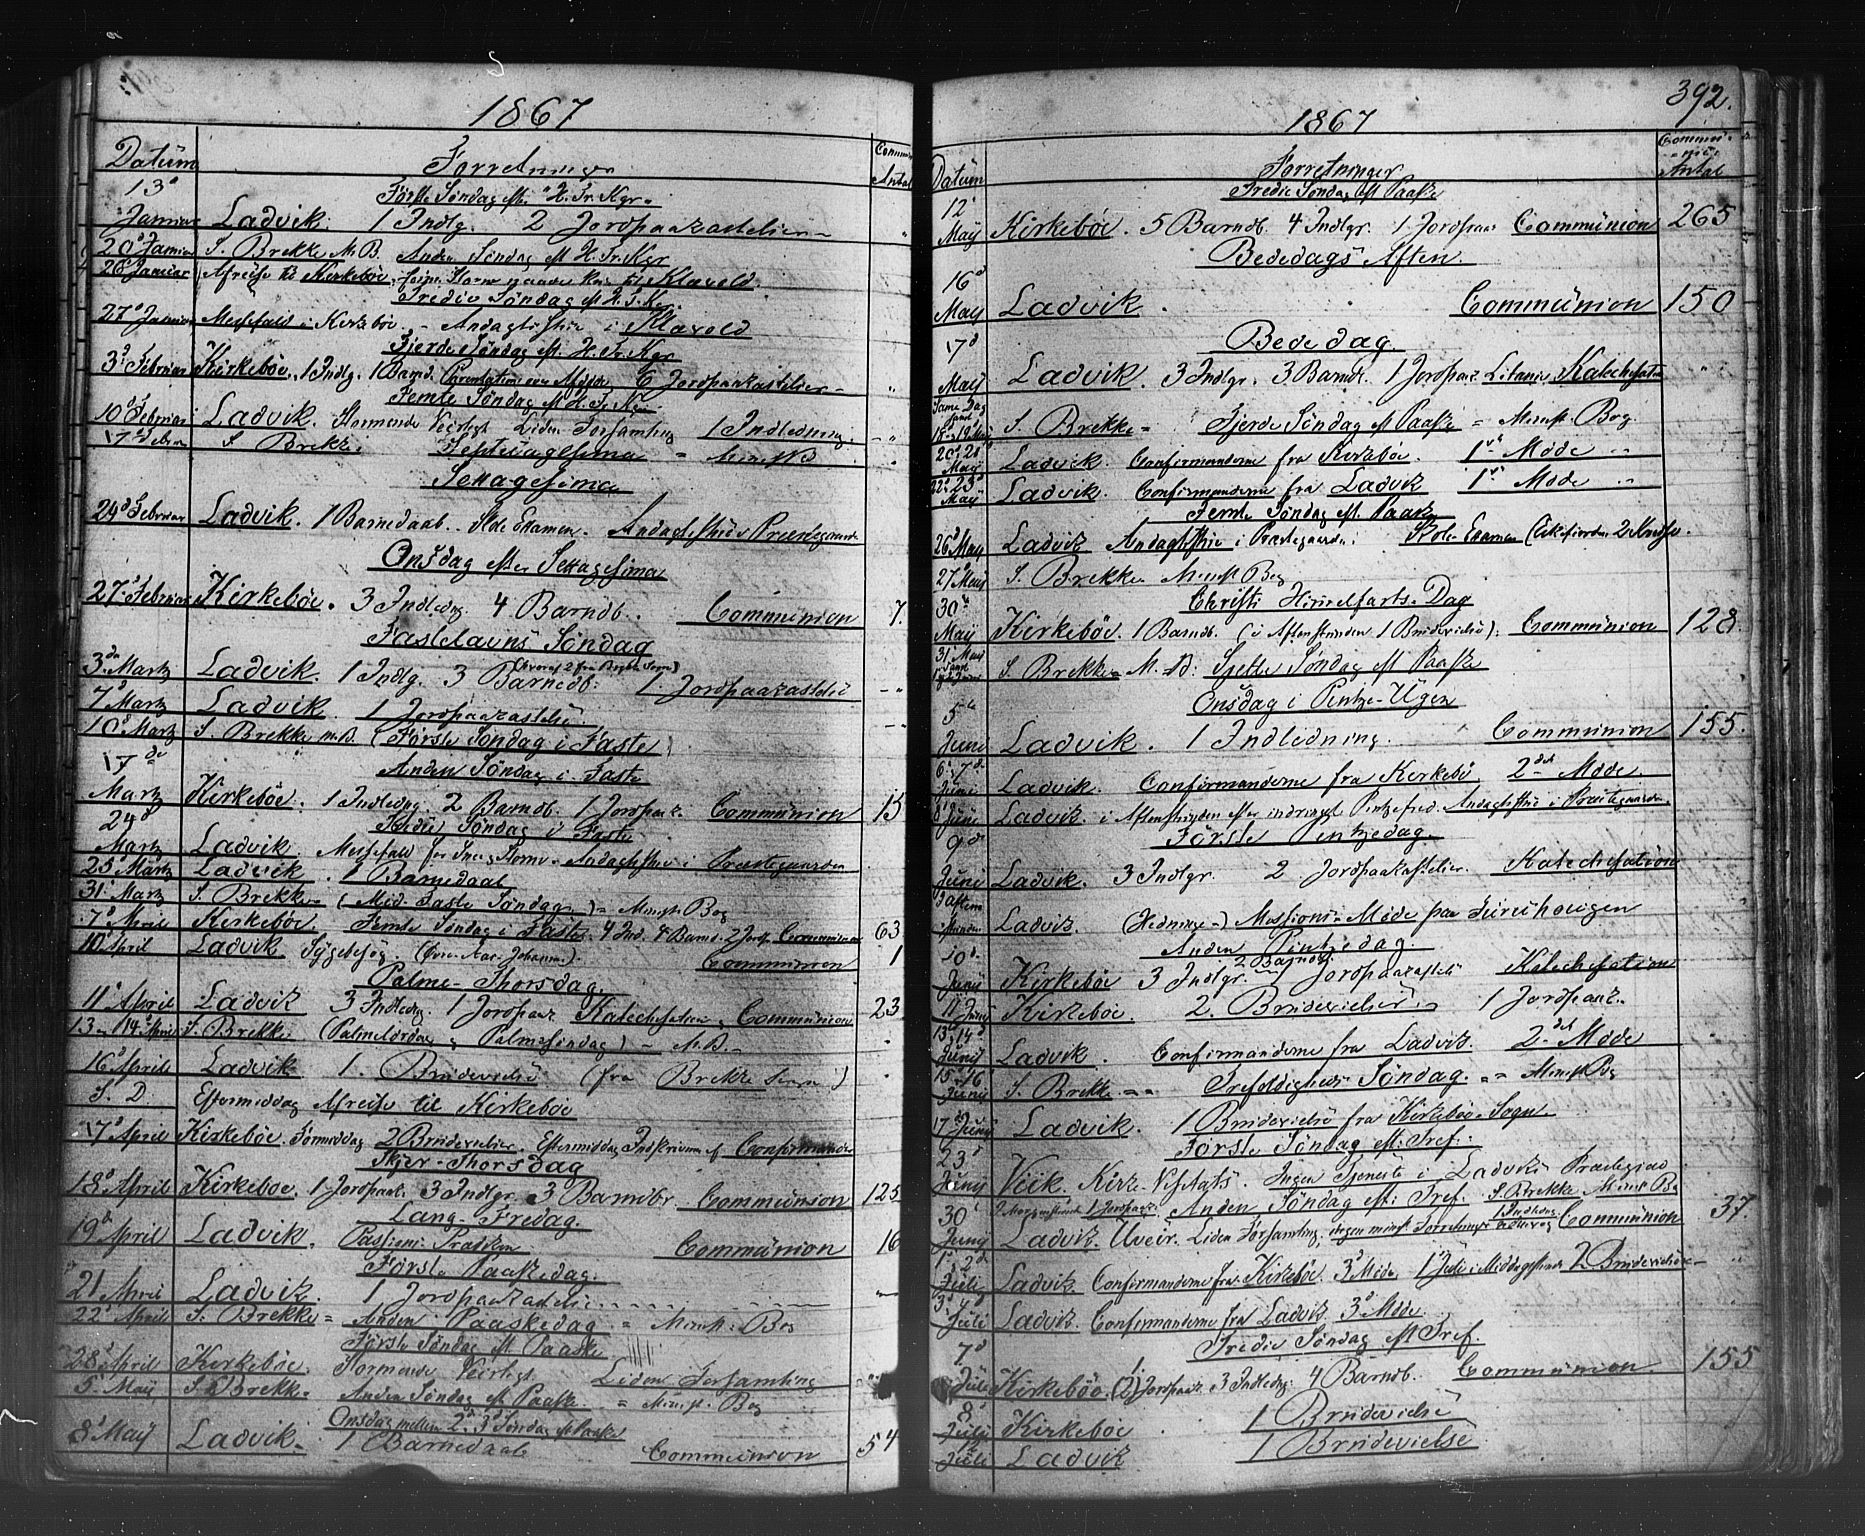 1867
Datum Forretninger Communic. Antal
13d Januar Første Søndag efter H. Tr. Kgr.
Ladvik. 1 Indlg. 2 Jordpaakastelser
20d Januar S. Brekke M.B. Anden Søndag eft H. Tr. Kgr
26d Januar Afreise til Kirkebøe, Storm Klævold
Tredie Søndag eft H. T. Kr.
27d Januar Messefald i Kirkebøe. Andagtsøvelse i Klævold
Fjerde Søndag eft. H. Tr. Kgr
3d Februar Kirkebøe. 1 Indlg. 1 Barnd. 6 Jordpaakastelser
Femte Søndag eft H. Tr. Kgr
10d Februar Ladvik. Stormende Veirligt Liden Forsamling 1 Indledning
17d Febru S. Brekke. Septuagesima = Minist B
Sexagesima
24d Februar Ladvik. 1 Barnedaab. Skole Examen. Præstegaarden
Onsdag efter Sexagesima
27d Februar Kirkebøe. 3 Indledng: 4 Barndb. Communion 7.
Fastelavns Søndag
3die Martz Ladvik. 1 Indlg. 3 Barnedb: (hvoraf 2 fra Brekke Sogn) 1 Jordpaakastelse
7d Martz Ladvik. 1 Jordpaakastelse
10d Martz S. Brekke M.B. (Første Søndag i Faste)
17de Anden Søndag i Faste
Martz Kirkebøe. 1 Indledng. 2 Barndb. 1 Jordpaak. Communion 15
24d Tredie Søndag i Faste
Martz Ladvik. Messefald for Snee og Storm - i Præstegaarden
25d Martz Ladvik. 1 Barnedaab
31d Martz S. Brekke (Mid-Faste Søndag) = Minist: Bog
7d April Kirkebøe. Femte Søndag i Faste. 4 Ind. 4 Barnd. 2 Jordp. Communion 63
10d April Ladvik Sygebesøg. Communion 1
Palme-Thorsdag.
11d April Ladvik 3 Indledng. 1 Jordpaak. Katechisation. Communion 23
13-14d April S. Brekke (Palmelørdag & Palmesøndag) - M.B.
16d April Ladvik 1. Brudevielse (fra Brekke Sogn)
S. D. Eftermiddag Afreise til Kirkebøe
17d April Kirkebøe. Formiddag 2 Brudevielser. Eftermiddag Indskrivning af Confirmander
Skjær-Thorsdag
18d April Kirkebøe. 1 Jordpaak. 3 Indlgr. 3 Barndbr. Communion 125
Lang-Fredag.
19d April Ladvik. Passions-Prædiken Communion 16
Første Paaskedag.
21 April Ladvik. 1 Jordpaakastelse
22d April S. Brekke = Anden Paaskedag = Minist: Bog
Første Søndag eft. Paaske
28d April Kirkebøe. Stormende Veirligt Liden Forsamling
5d Maij S. Brekke. Anden Søndag eft Paaske = Minist. Bog
Onsdag mellem 2d & 3d Søndag eft Paaske
8d Maij Ladvik. 1 Barnedaab Communion 54
392.
1867
Datum Forretninger Communicantnes Antal
Tredie Søndag eft Paaske
12d Maij Kirkebøe. 5 Barndb. 4 Indlgr. 1 Jordpaa: Communion 265
Bededags Aften.
16d Maij Ladvik. Communion 150
17d Bededag.
Maij Ladvik. 3 Indlgr. 3 Barndb. 1 Jordpaak. Litanie Katechisation
Same Dag samt 18-19 Maij S. Brekke - Fjerde Søndag eft Paaske = Minist. Bog
20-21 Maij Ladvik. Confirmanderne fra Kirkebøe. 1ste Møde
22-23d Maij Ladvik. Confirmanderne fra Ladvik 1ste Møde
Femte Søndag eft. Paaske
26d Maij Ladvik Andagtsøvelse i Præstegaarden. Skole Examen
27d Maij S. Brekke Minist Bog
Christi Himmelfarts-Dag
30te Maij Kirkebøe. 1 Barndb. (i Aftenstunden 1 Brudevielse). Communion 128.
31 Maij samt S. Brekke M. B: Sjette Søndag eft Paaske
Onsdag i Pintse-Ugen
5te Juni Ladvik. 1 Indledning. Communion 155.
6-7d Juni Ladvik. Confirmanderne fra Kirkebø 2det Møde.
8d Juni Ladvik i Andagtsøvelse i Præstegaarden.
9d Første Pintsedag.
Juni Ladvik. 3 Indlgr. 2 Jordpaakastelser. Katechisation
Ladvik (Hedninge-) Missions-Møde
10d. Anden Pintsedag.
Junij Kirkebøe 3 Indlgr. 2 Barndb. 1 Jordpaakastelse Katechisation
11 Junij Kirkebøe. 2. Brudevielser. 1 Jordpaak.
13, 14d Junij Ladvik. Confirmanderne fra Ladvik. 2det Møde
15-16 Junij S. Brekke Trefoldigheds Søndag. Minist Bog
17d Junij Ladvik. 1 Brudevielse fra Kirkebøe-Sogn
Første Søndag eft: Tref.
23d Junij Viik. Kirke-Visitats. Ingen Tjeneste i Ladviks Præstegjeld
30d 1 Jordpaak. Anden Søndag eft: Tref. S. Brekke Minist Bo
Junij Ladvik. Uveir. Liden Forsamling, Communion 37
1-2d Julij Ladvik Confirmanderne fra Kirkebøe. 3d Møde. 1 Juli i Middagsstund 2 Brudevielser
3d Juli Ladvik. Confirmanderne fra Ladvik 3d Møde
Tredie Søndag eft Tref.
7d Juli Kirkebøe. (2) Jordpaak. 3 Indledng. 4 Barndb. Communion 155
8d Juli Kirkebøe 1 Brudevielse
Juli Ladvik 1 Brudevielse